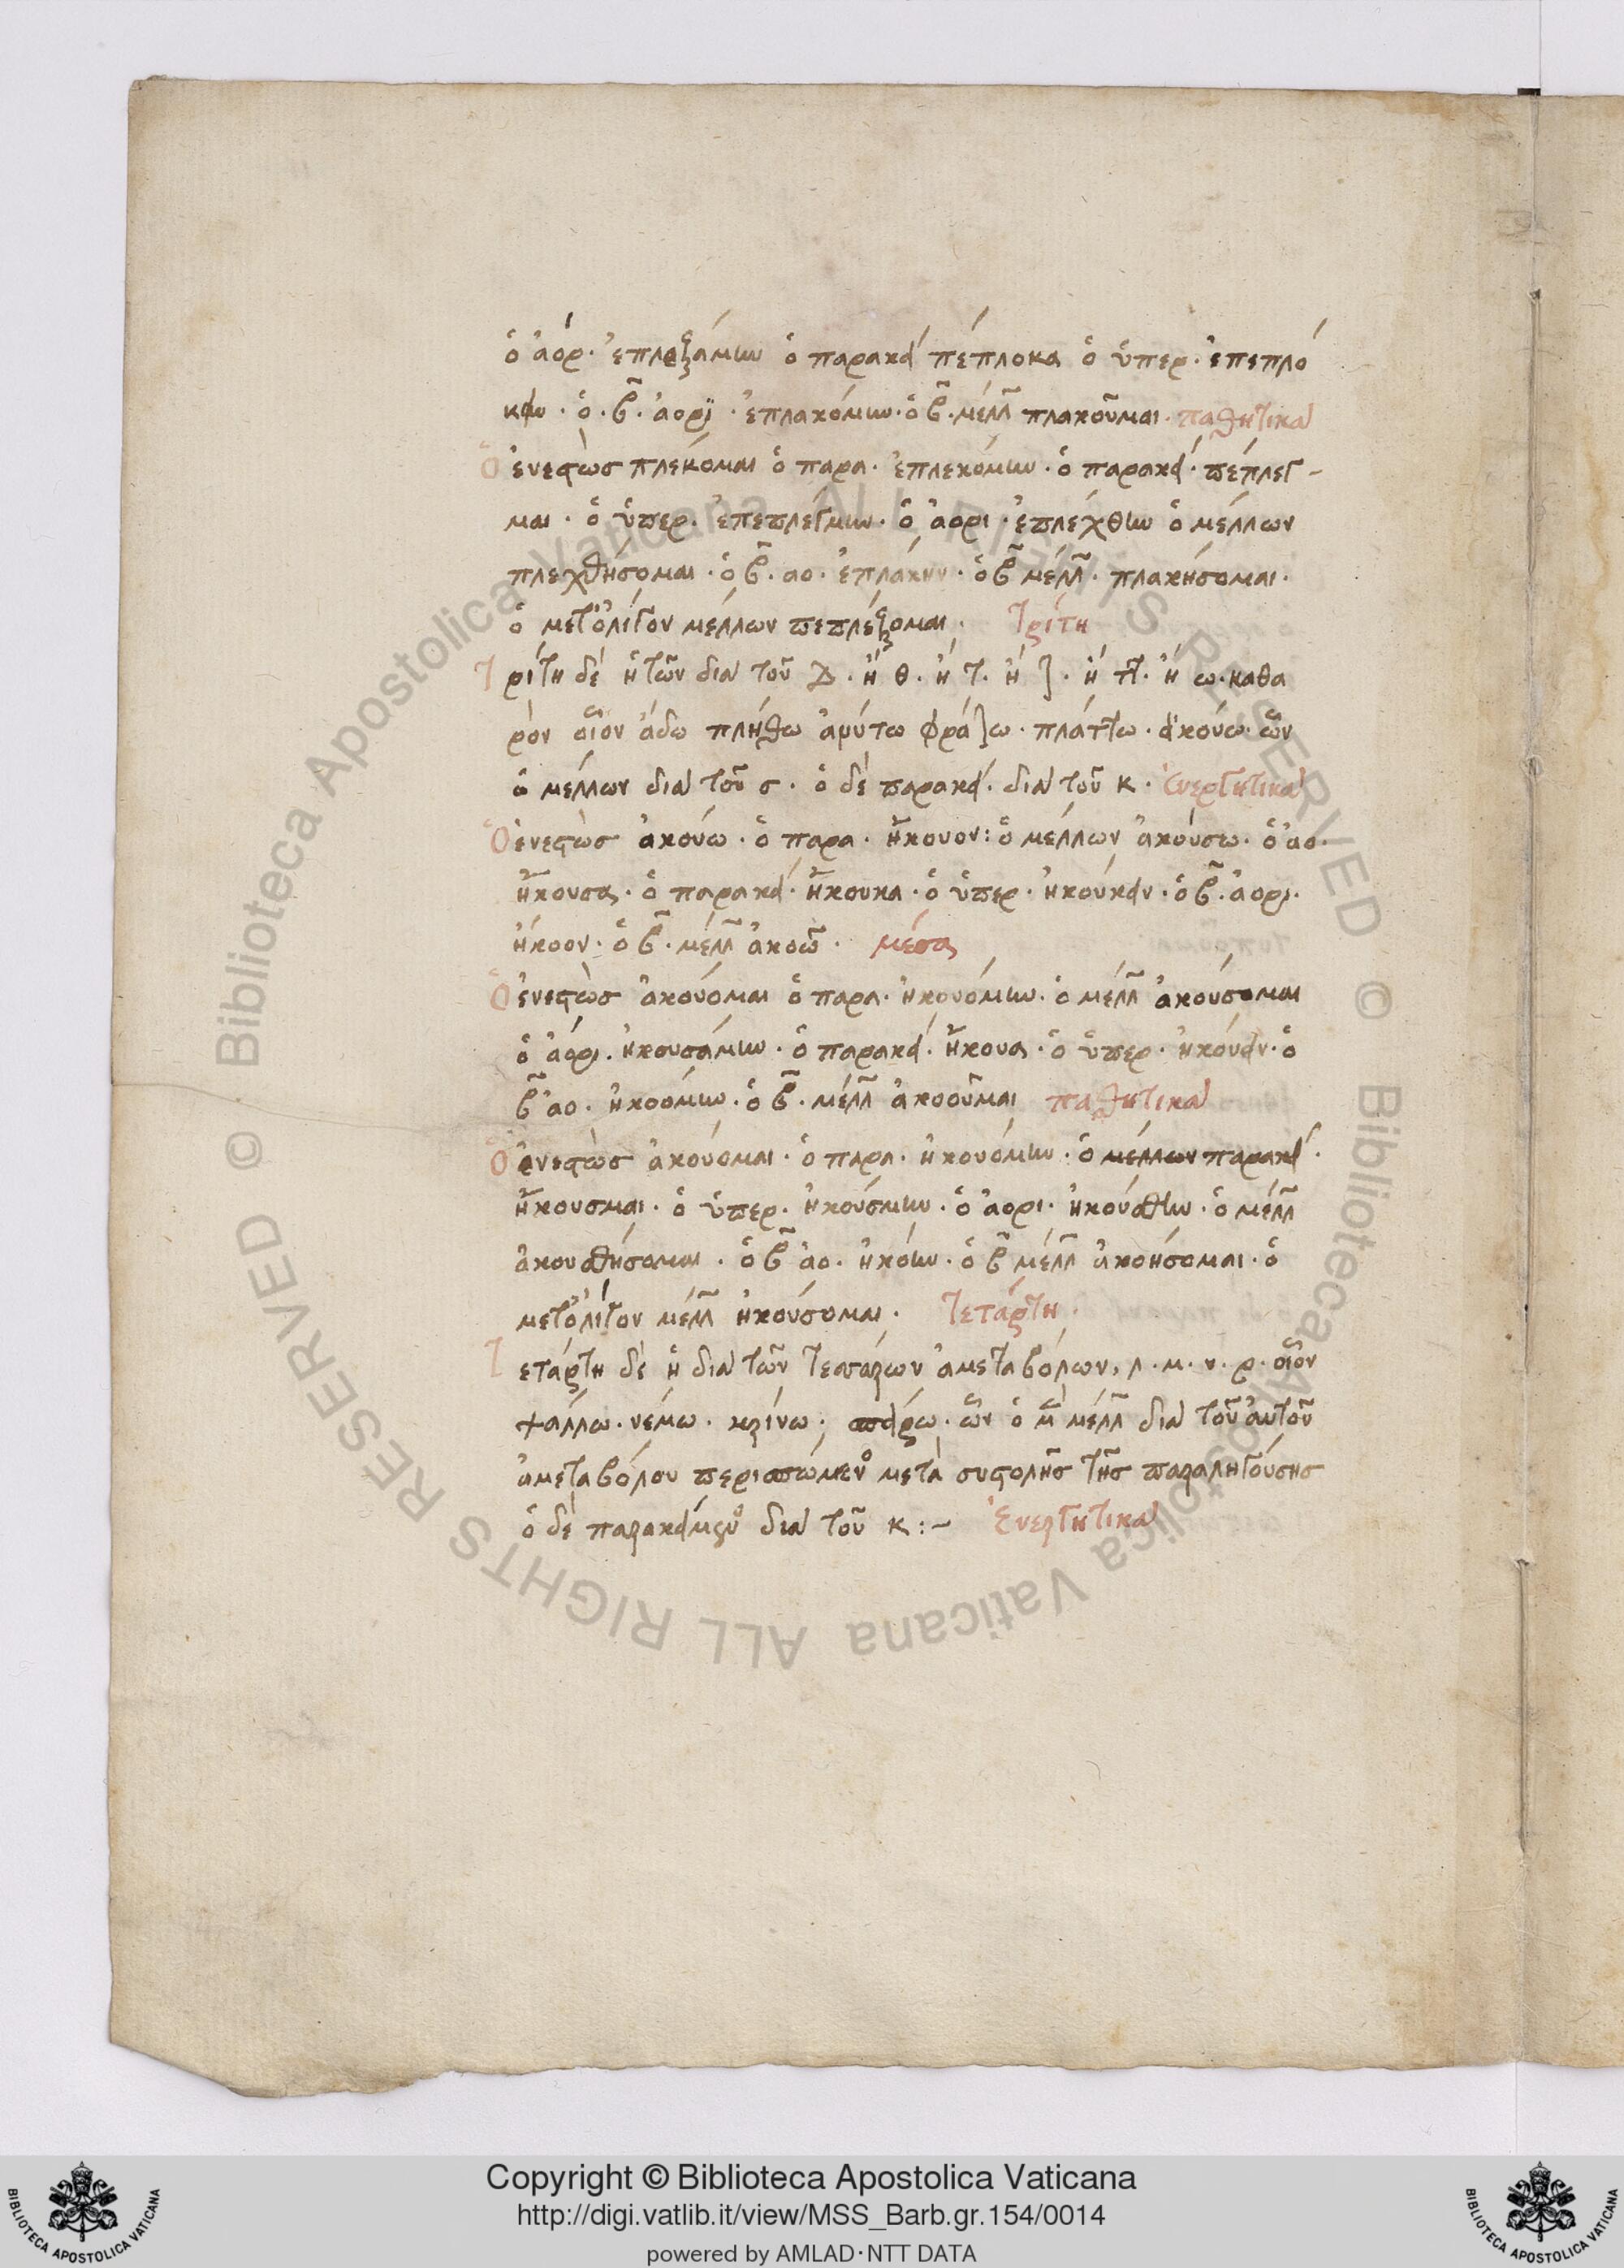 ὁ ἀόρ. ἐπλεξάμην ὁ παρακεί πέπλοκα ὁ ὑπερ. ἐπεπλό
κειν · ὁ · β̄ · ἀορϊ · ἐπλακόμην · ὁ β̄ · μέλλ πλακοῦμαι · παθητικά
Ὁ ἐνεστὼσ πλέκομαι ὁ παρα · ἐπλεκόμην · ὁ παρακεί · πέπλεγ-
μαι · ὁ ὑπερ. ἐπεπλέγμην · ὁ ἀορι · ἐπλέχθην ὁ μέλλων
πλεχθήσομαι · ὁ β̄ · αο · ἐπλάκην · ὁ β̄ μέλλ · πλακήσομαι ·
ὁ μετ' ὀλίγον μέλλων πεπλέξομαι · Τρίτη
Τρίτη δέ ἡ τῶν διὰ τοῦ δ · ἢ θ · ἢ τ · ἢ ζ · ἢ ττ · ἢ ω · καθα
ρὸν οἷον ἄδω πλήθω ἀρύτω φράζω · πλάττω · ἀκούω · ὧν
ὁ μέλλων διὰ τοῦ σ · ὁ δὲ παρακεί · διὰ τοῦ κ · Ἐνεργητικά
Ὁ ἐνεστὼσ ἀκούω · ὁ παρα · ἤκουον : ὁ μέλλων ἀκούσω · ὁ ἀο ·
ἤκουσα · ὁ παρακεί · ἤκουκα · ὁ ὑπερ · ἠκούκειν · ὁ β̄ · ἀορι ·
ἤκοον · ὁ β̄ · μέλλ ἀκοῶ · μέσα
Ὁ ἐνεστὼσ ἀκούομαι ὁ παρα · ἠκουόμην · ὁ μέλλ ἀκούσομαι
ὁ ἀόρι · ἠκουσάμην · ὁ παρακεί · ἤκουα · ὁ ὑπερ · ἠκούειν · ὁ
β̄ ἀο · ἠκοόμην · ὁ β̄ · μέλλ ἀκοοῦμαι παθητικά
Ὁ ἐνεστὼσ ἀκούομαι · ὁ παρα · ἠκουόμην · ὁ μέλλων παρακεί ·
ἤκουσμαι · ὁ ὑπερ · ἠκούσμην · ὁ ἀορι · ἠκούσθην · ὁ μέλλ
ἀκουσθήσομαι · ὁ β̄ ἀο · ἠκόην · ὁ β̄ μέλλ ἀκοήσομαι · ὁ
μετ' ὀλίγον μέλλ ἠκούσομαι · Τετάρτη ·
Τετάρτη δὲ ἡ διὰ τῶν τεσσάρων ἀμεταβόλων, λ · μ · ν · ρ · οἷον
ψάλλω · νέμω · κρίνω · σπείρω · ὧν ὁ μὲν μέλλ διὰ τοῦ αὐτοῦ
ἀμεταβόλου περισπώμενος μετὰ συστολῆσ τῆσ παραληγούσησ
ὁ δὲ παρακείμενος διὰ τοῦ κ :- Ἐνεργητικά
Copyright © Biblioteca Apostolica Vaticana
http://digi.vatlib.it/view/MSS_Barb.gr.154/0014
powered by AMLAD·NTT DATA
BIBLIOTECA APOSTOLICA VATICANA
BIBLIOTECA APOSTOLICA VATICANA
© Biblioteca Apostolica Vaticana ALL RIGHTS RESERVED © Biblioteca Apostolica Vaticana ALL RIGHTS RESERVED